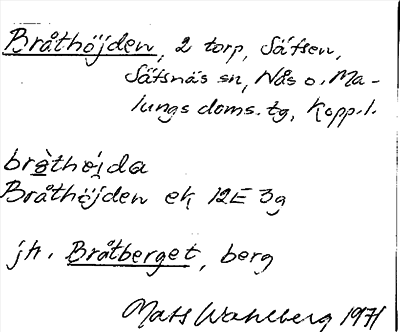 Bråthöjden, 2 torp, Säfsen,
Säfsnäs sn, Nås o. Ma-
lungs doms. tg, Kopp.l.
bràthöjda
Bråthöjden ek 12E 3g
jfr. Bråtberget, berg
Mats Wahlberg 1971